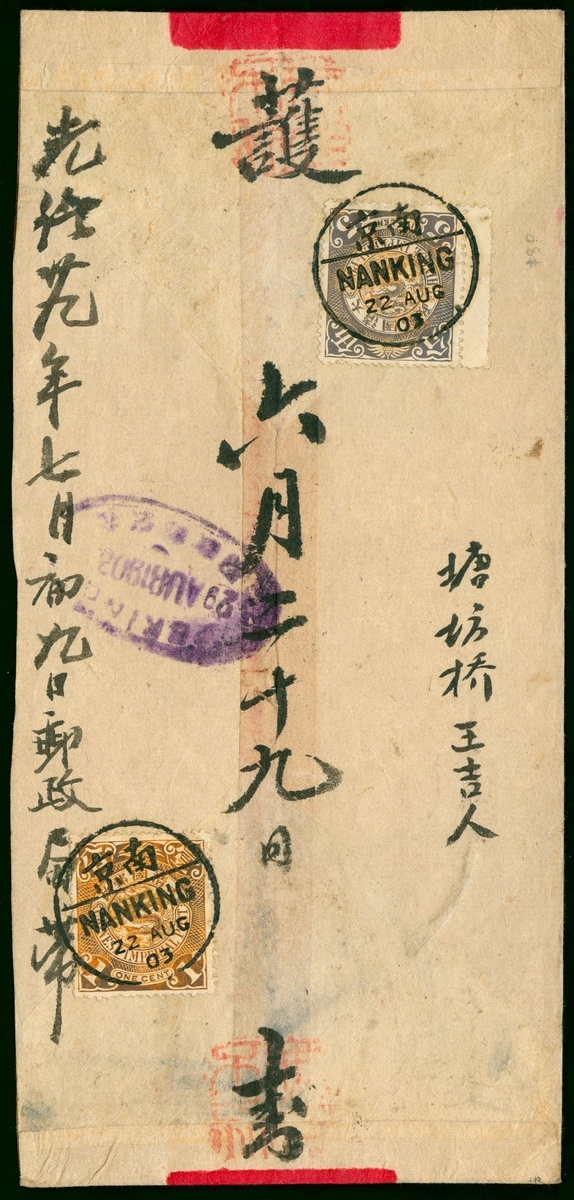 護
六月二十九日
塘坊橋 王吉人
光緒廿九年七月初九日郵政局帶
南京
NANKING
22 AUG
03
PEKING
29 AUG 1903
南京
NANKING
22 AUG
03
ONE CENT
1